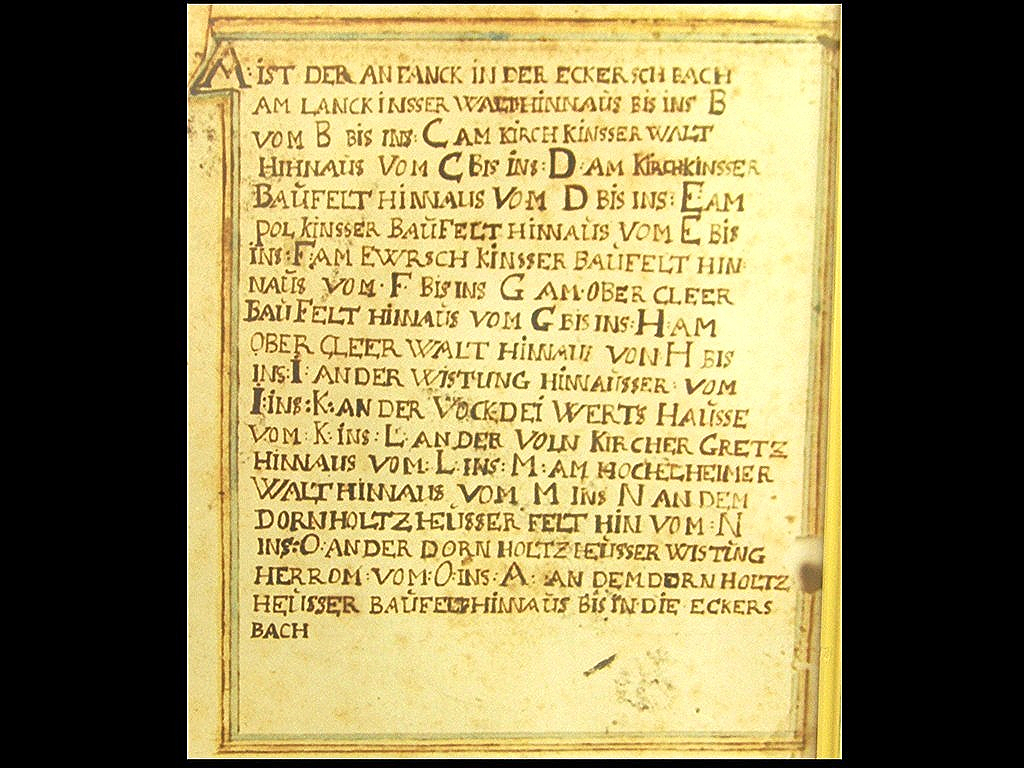 A·IST DER ANFANCK IN DER ECKERSCH BACH
AM LANCKINSSER WALT HINNAŮS BIS INS B
VOM B BIS INS: C AM KIRCHKINSSER WALT
HIHNAŮS VOM C BIS INS: D·AM KIRCHKINSSER
BAŮFELT HINNAUS VOM D BIS INS: E AM
POLKINSSER BAŮFELT HINNAŮS VOM E BIS
INS: F: AM EWRSCH KINSSER BAŮFELT HIN·
NAŮS VOM·F BIS INS G AM·OBER CLEER
BAŮFELT HINNAŮS VOM G BIS INS: H: AM
OBER CLEER WALT HINNAUS VON H BIS
INS: I: AN DER WISTUNG HINNAŮSSER· VOM
I: INS: K: AN DER VOCKDEI WERTS HAŮSSE
VOM·K·INS: L·AN DER VOLN KIRCHER GRETZ
HINNAUS VOM: L·INS: M: AM HOCHELHEIMER
WALT HINNAUS VOM M INS N AN DEM
DORNHOLTZHEŮSSER FELT HIN VOM: N
INS: O·AN DER DORNHOLTZHEŮSSER WISTŮNG
HERROM·VOM·O·INS·A: AN DEM DORNHOLTZ
HEŮSSER BAŮFELT HINNAŮS BIS IN·DIE ECKERS
BACH